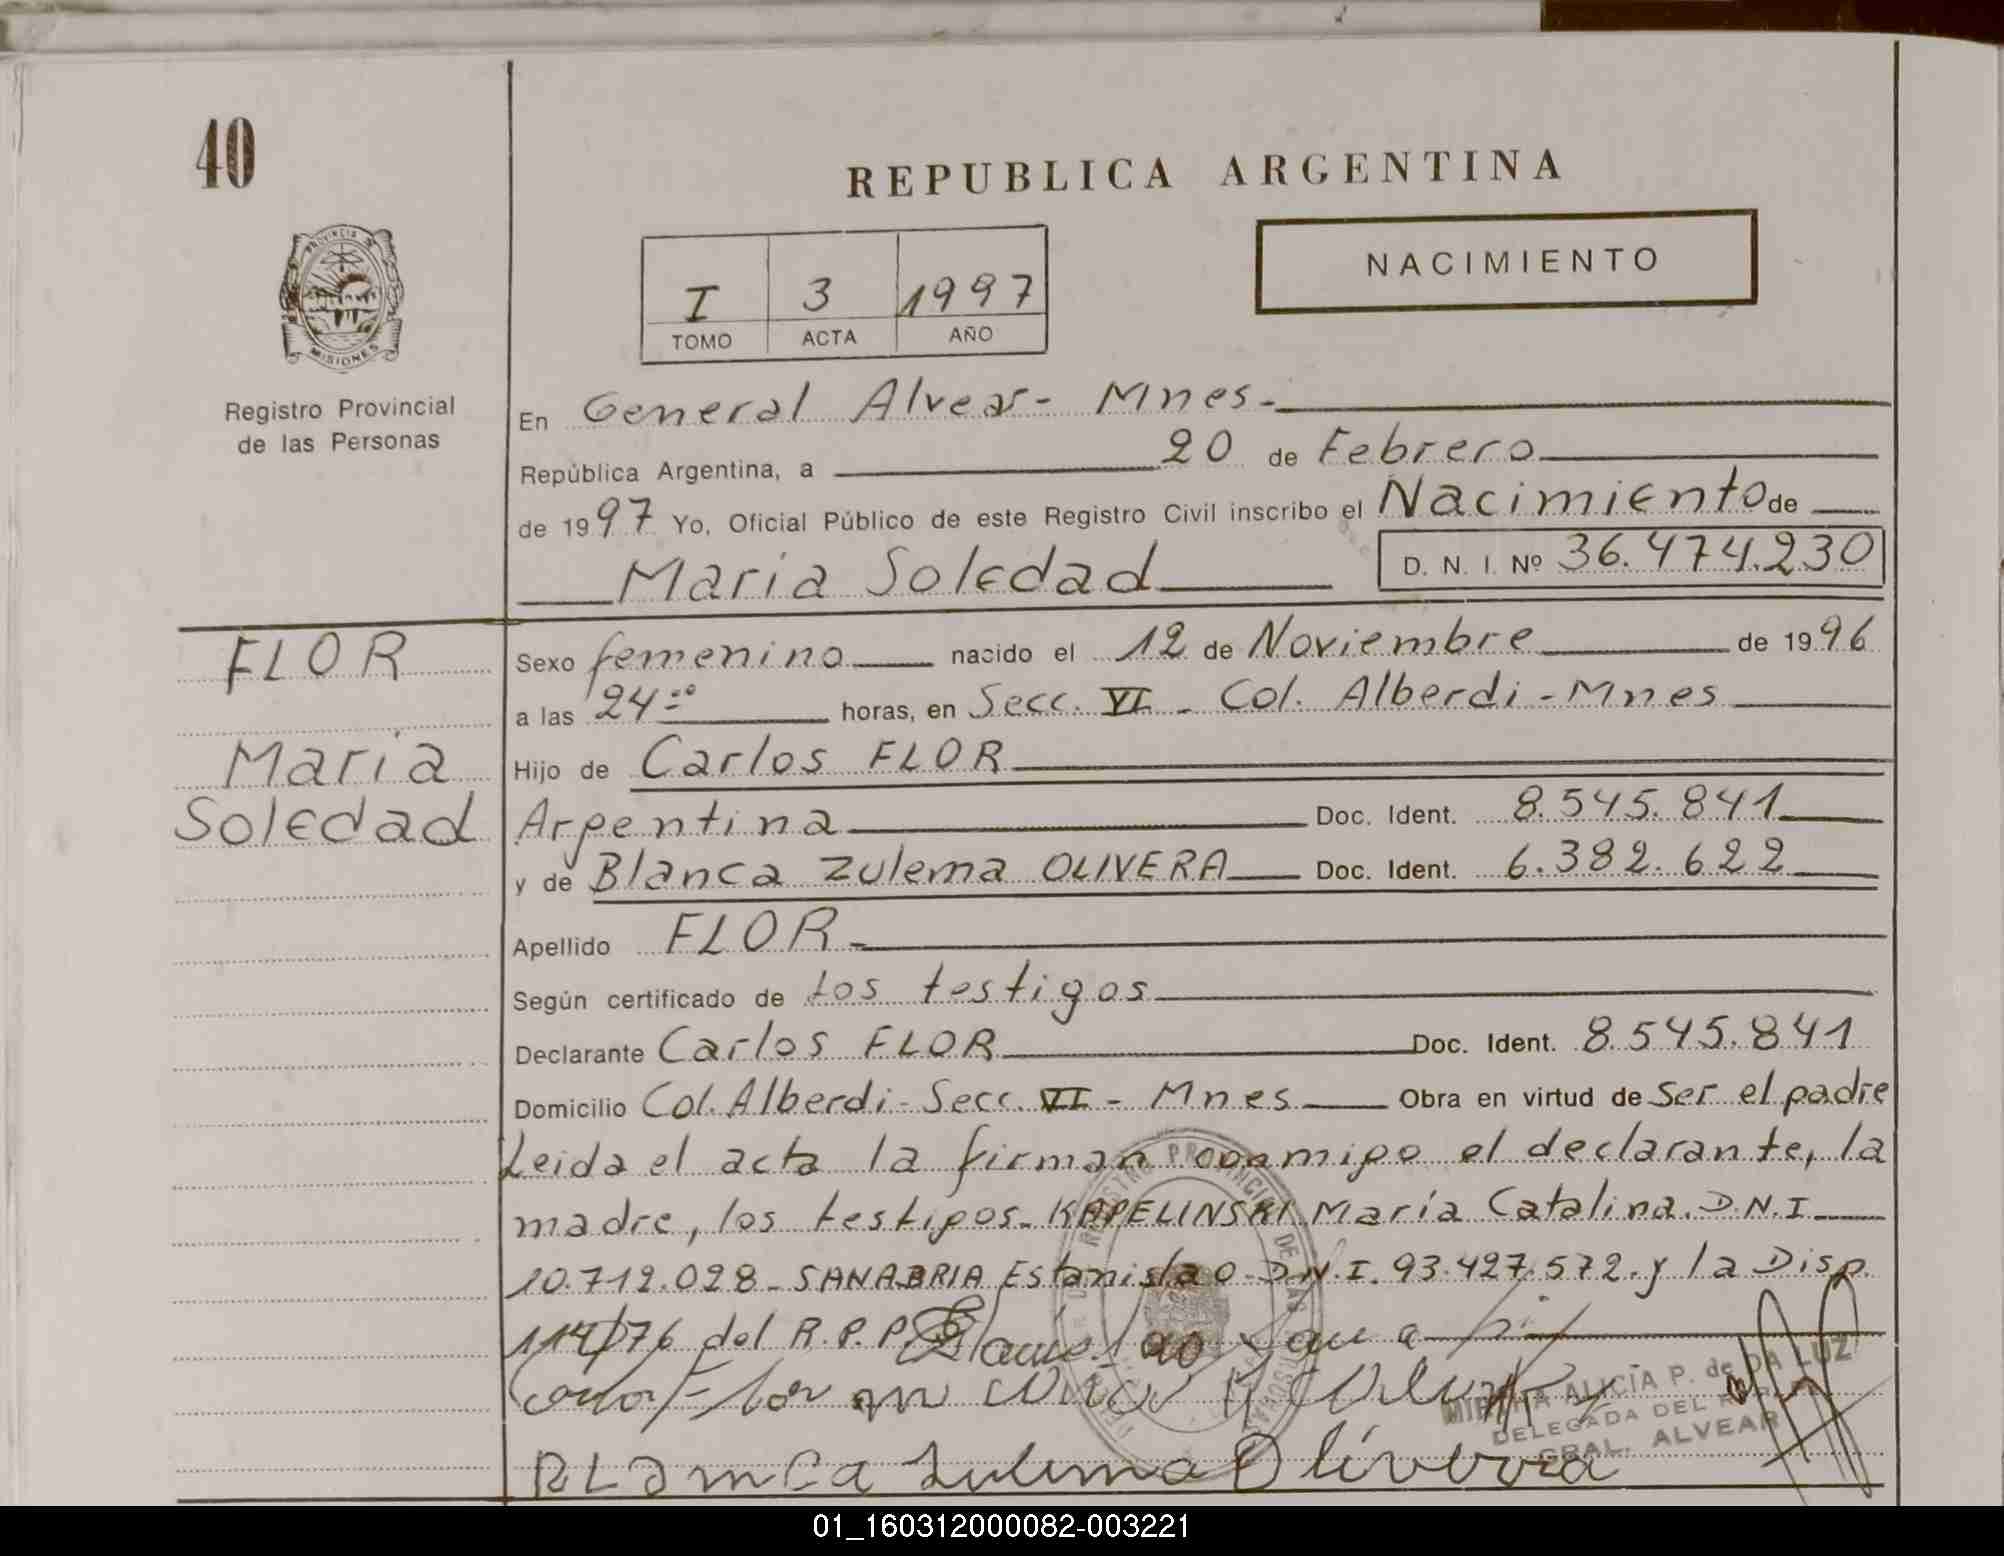 40
REPUBLICA ARGENTINA
NACIMIENTO
I 3 1997
TOMO ACTA AÑO
PROVINCIA DE
MISIONES
Registro Provincial
de las Personas
En General Alvear - Mnes -
República Argentina, a 20 de Febrero
de 1997 Yo, Oficial Público de este Registro Civil inscribo el Nacimiento de
Maria Soledad D. N. I. Nº 36.474.230
FLOR
Maria
Soledad
Sexo femenino nacido el 12 de Noviembre de 1996
a las 24=00 horas, en Secc. VI - Col. Alberdi - Mnes
Hijo de Carlos FLOR
Argentina Doc. Ident. 8.545.841
y de Blanca Zulema OLIVERA Doc. Ident. 6.382.622
Apellido FLOR
Según certificado de los testigos
Declarante Carlos FLOR Doc. Ident. 8.545.841
Domicilio Col. Alberdi - Secc. VI - Mnes Obra en virtud de Ser el padre
Leida el acta la firman conmigo el declarante, la
madre, los testigos - KAPELINSKI María Catalina. D.N.I
10.712.028 - SANABRIA Estanislao - D.N.I. 93.427.572. y la Disp.
114/76 del R.P.P.
REGISTRO PROVINCIAL DE LAS PERSONAS
MIRTHA ALICIA P. de DA LUZ
DELEGADA DEL
GRAL. ALVEAR
BLanca Zulema Olivera
01_160312000082-003221